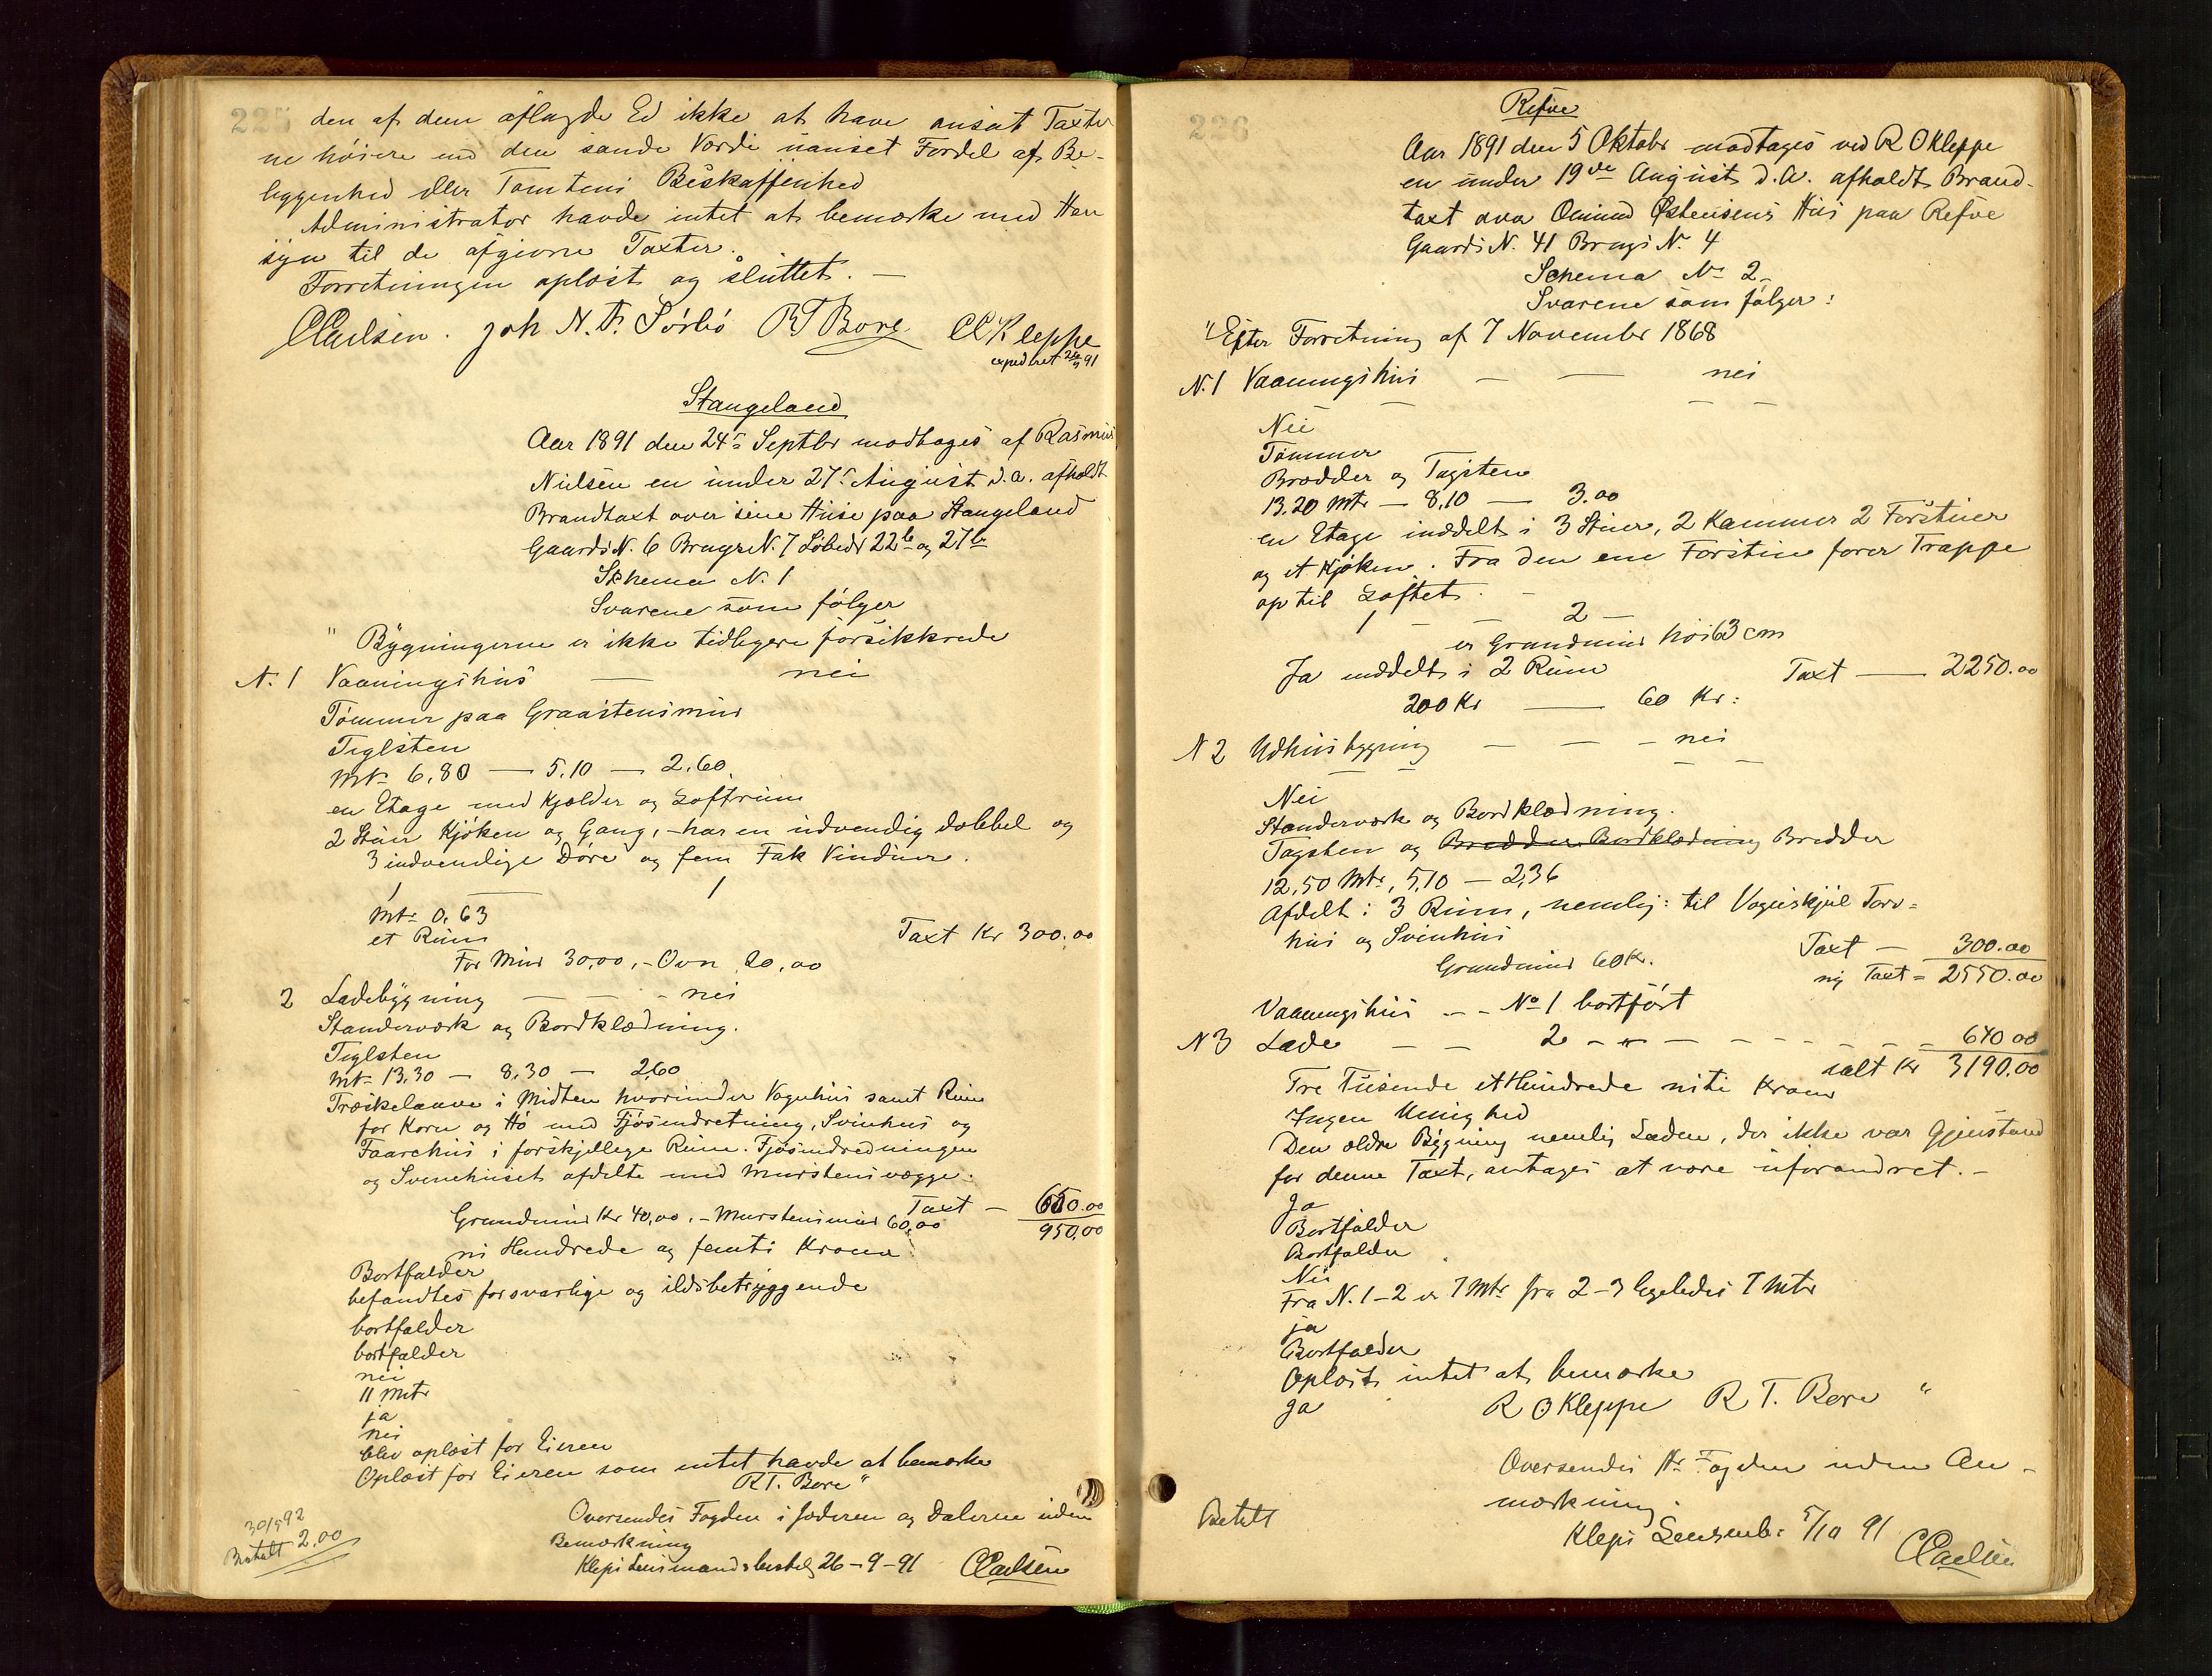 225
den af dem aflagde Ed ikke at have ansat Taxter
ne høiere end den sande Værdi uanset Fordel af Be-
liggenhed eller Tomtens Beskaffenhed
Administrator havde intet at bemærke med Hen
syn til de afgivne Taxter.
Forretningen oplæst og sluttet. —
CCarlsen. Joh N. T. Sørbø RTBore CCKleppe
expederet 26/9 91
Stangeland
Aar 1891 den 24de Septbr modtages af Rasmus
Nielsen en under 27de August d.a. afholdt
Brandtaxt over sine Huse paa Stangeland
Gaards N. 6 Brugs N. 7 Løbedr 22b og 27b
Schema N. 1
Svarene som følger
" Bygningerne er ikke tidligere forsikkrede
N. 1 Vaaningshus — nei
Tømmer paa Graastensmur
Teglsten
Mtr 6,80 — 5,10 — 2,60.
en Etage med Kjælder og Loftrum
2 Stuer Kjøken og Gang, - har en udvendig dobbel og
3 indvendige Døre og fem Fak Vinduer.
1 — 1
Mtr 0,63
et Rum
Taxt Kr 300.00
For Mur 30,00, - Ovn 20,00
2 Ladebygning — — - nei
Standerværk og Bordklædning.
Teglsten
Mtr 13,30 — 8,30 — 2,60
Træskelaave i Midten hvorunder Vognhus samt Rum
for Korn og Hø med Fjøsindretning, Svinhus og
Faarehus i forskjellige Rum. Fjøsindredningen
og Svinehuset afdelte med Murstensvægge.
Taxt — 650.00
Grundmur Kr 40,00. - Murstensmur 60,00
950,00
ni Hundrede og femti Kroner
Bortfalder
befandtes forsvarlige og ildsbetryggende
bortfalder
bortfalder
nei
11 Mtr
ja
nei
blev oplæst for Eieren
Oplæst for Eieren som intet havde at bemærke
RT. Bore "
Oversendes Fogden i Jæderen og Dalerne uden
Bemærkning
Kleps Lensmandsbestel 26-9-91 CCarlsen
30/5 92
Betalt 2,00
226
Refve
Aar 1891 den 5 Oktobr modtages ved R O Kleppe
en under 19de August d.A. afholdt Brand-
taxt over Omund Østensens Hus paa Refve
Gaards N. 41 Brugs No 4
Schema No 2
Svarene som følger:
"Efter Forretning af 7 November 1868
N. 1 Vaaningshus — — nei
— — —
Nei
Tømmer
Brædder og Tagsten
13,20 Mtr — 8,10 — 3.00
en Etage inddelt i 3 Stuer, 2 Kammer 2 Forstuer
og et Kjøken. Fra den ene Forstue fører Trappe
op til Loftet.
1 — — 2 —
er Grundmur høi 63 cm
Ja inddelt i 2 Rum Taxt — 2250.00
200 Kr — 60 Kr:
N 2 Udhusbygning — — - nei
— — — —
Nei
Standerværk og Bordklædning.
Tagsten og Brædder Bordklædning Brædder
12,50 Mtr, 5,10 — 2,36
Afdelt i 3 Rum, nemlig: til Vognskjul Torv=
hus og Svinhus
Taxt — 300.00
Grundmur 60 Kr.
ny Taxt = 2550.00
Vaaningshus - - No 1 bortført
N 3 Lade — — 2 - " — - - - - - = 640 00
ialt Kr 3190.00
Tre Tusende et Hundrede niti Kroner
Ingen Uenighed
Den ældre Bygning nemlig Laden, der ikke var Gjenstand
for denne Taxt, antages at være uforandret. -
Ja
Bortfalder
Bortfalder
Nei
Fra N. 1-2 er 7 Mtr fra 2-3 ligeledes 7 Mtr
ja
Bortfalder
Oplæst intet at bemærke
Ja
R O Kleppe R T. Bore "
Oversendes Hr Fogden uden An-
mærkning.
Betalt
Kleps Lensmb: 5/10 91
CCarlsen